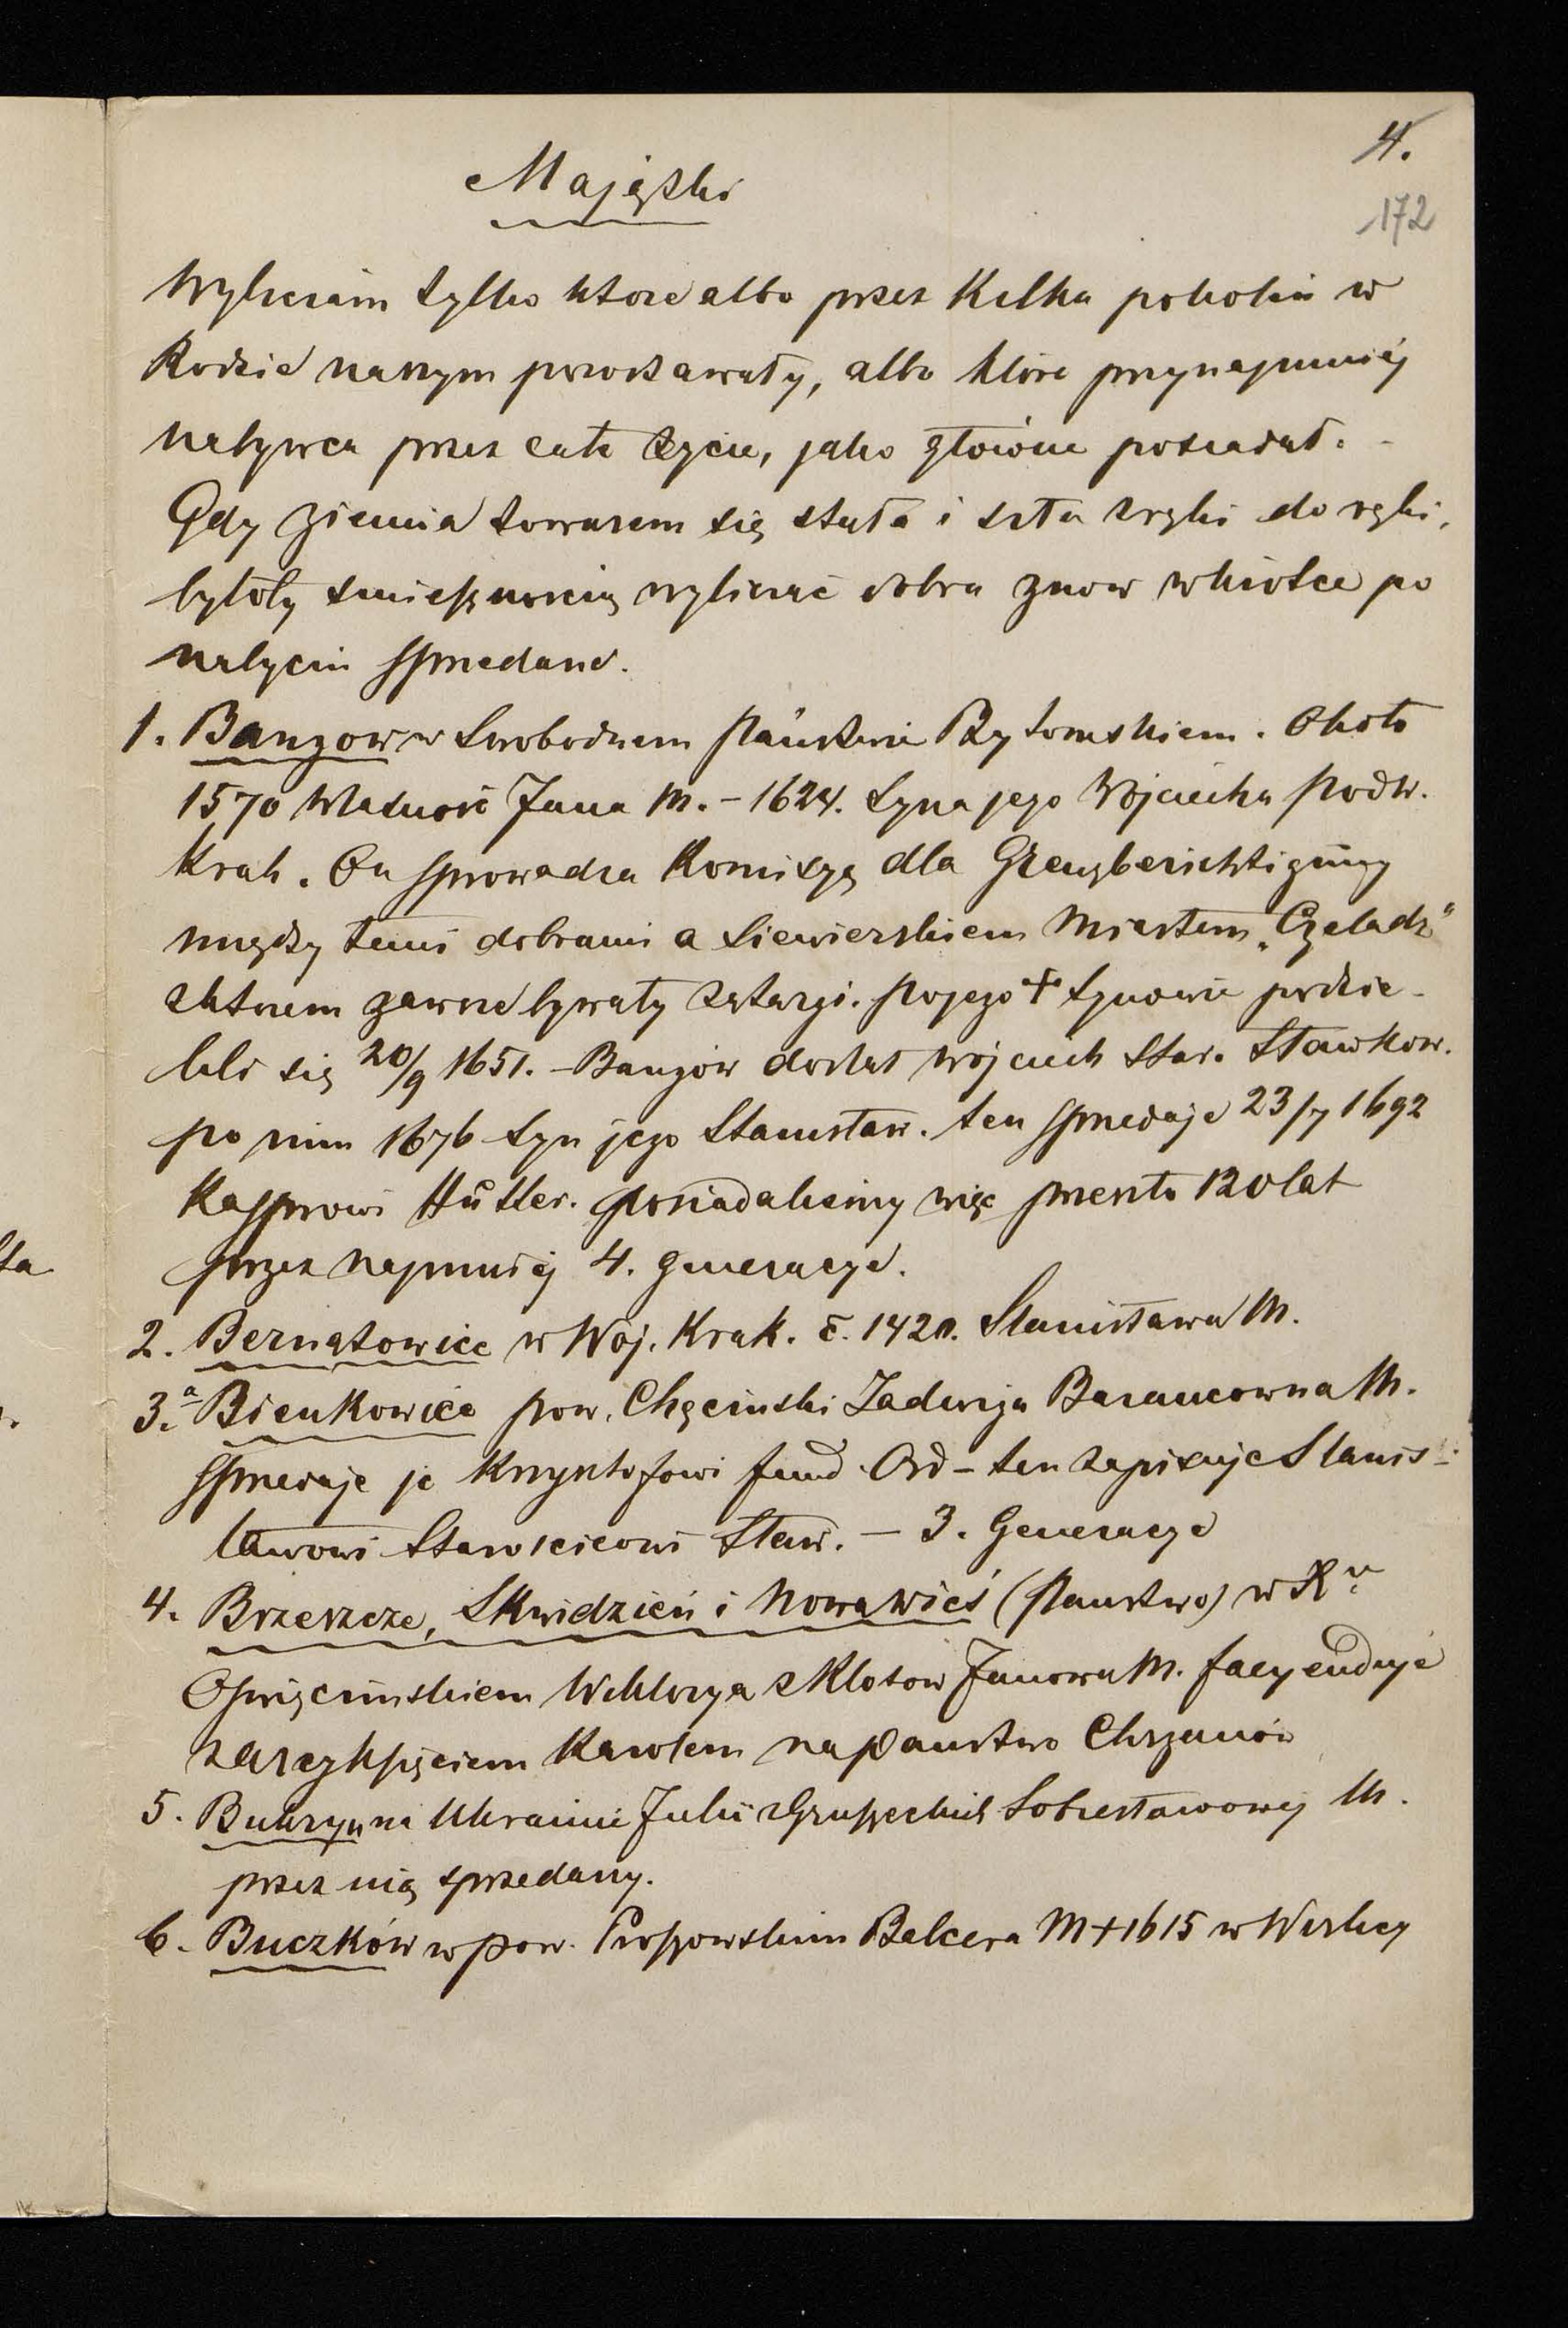 4.
172
Majątki
Wyliczam tylko które albo przez kilka pokoleń w
Rodzie naszym pozostawały, albo które przynajmniej
nabywca przez całe życie, jako główne posiadał. -
Gdy ziemia towarem się stała i szła z ręki do ręki,
byłoby śmiesznością wyliczać dobra znów wkrótce po
nabyciu sprzedane.
1. Bangow w Swobodnem Państwie Bytomskiem. Około
1570 własność Jana M. - 1624. syna jego Wojciecha Podw.
Krak. On sprowadza Komisyę dla Grenzberichtigung
między temi dobrami a Siewierskiem Miastem „Czeladź"
z którem zawsze bywały zatargi. Po jego + synowie podzie-
lili się 20/9 1651. - Bangów dostał Wojciech Star. Sławkow.
po nim 1676 syn jego Stanisław. ten sprzedaje 23/7 1692
Kasprowi Hůtler. posiadaliśmy więc przeszło 120 lat
przez najmniej 4. generacye.
2. Bernatowice w Woj. Krak. č. 1420. Stanisława M.
3.a Bienkowice pow. Chęciński Jadwiga Barancowna M.
sprzedaje je Krzysztofowi fund. Ord - ten zapisuje Stanis-
ławowi Starościcowi Sław. - 3. Generacye
4. Brzeszcze, Skwidzień i Nowawieś (Panstwo) w
Oświęcimskiem Wiktorya z Klotow Janowa M. facyenduje
z arcyksięciem Karolem na Panstwo Chrzanów
5. Bukryn na Ukrainie Julii z Gruszeckich Sobiesławowej M.
przez nią sprzedany.
6. Buczków w pow. Proszowskim Belcera M + 1615 w Wiślicy